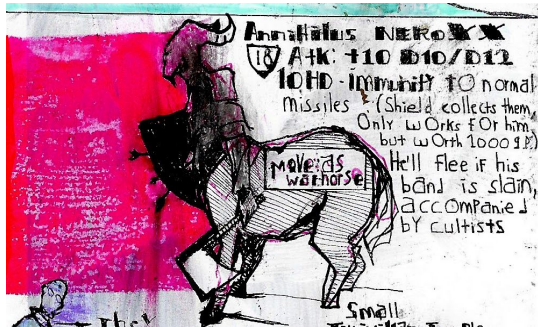 Annihilus NERO XX
16 Atk: +10 D10/D12
10HD - Immunity TO normal
missiles (Shield collects them,
Only wOrks fOr him,
but wOrth 1000 g.p.)
He'll Flee if his
band is slain,
accompanied
by cultists
Move: as
warhorse
Small